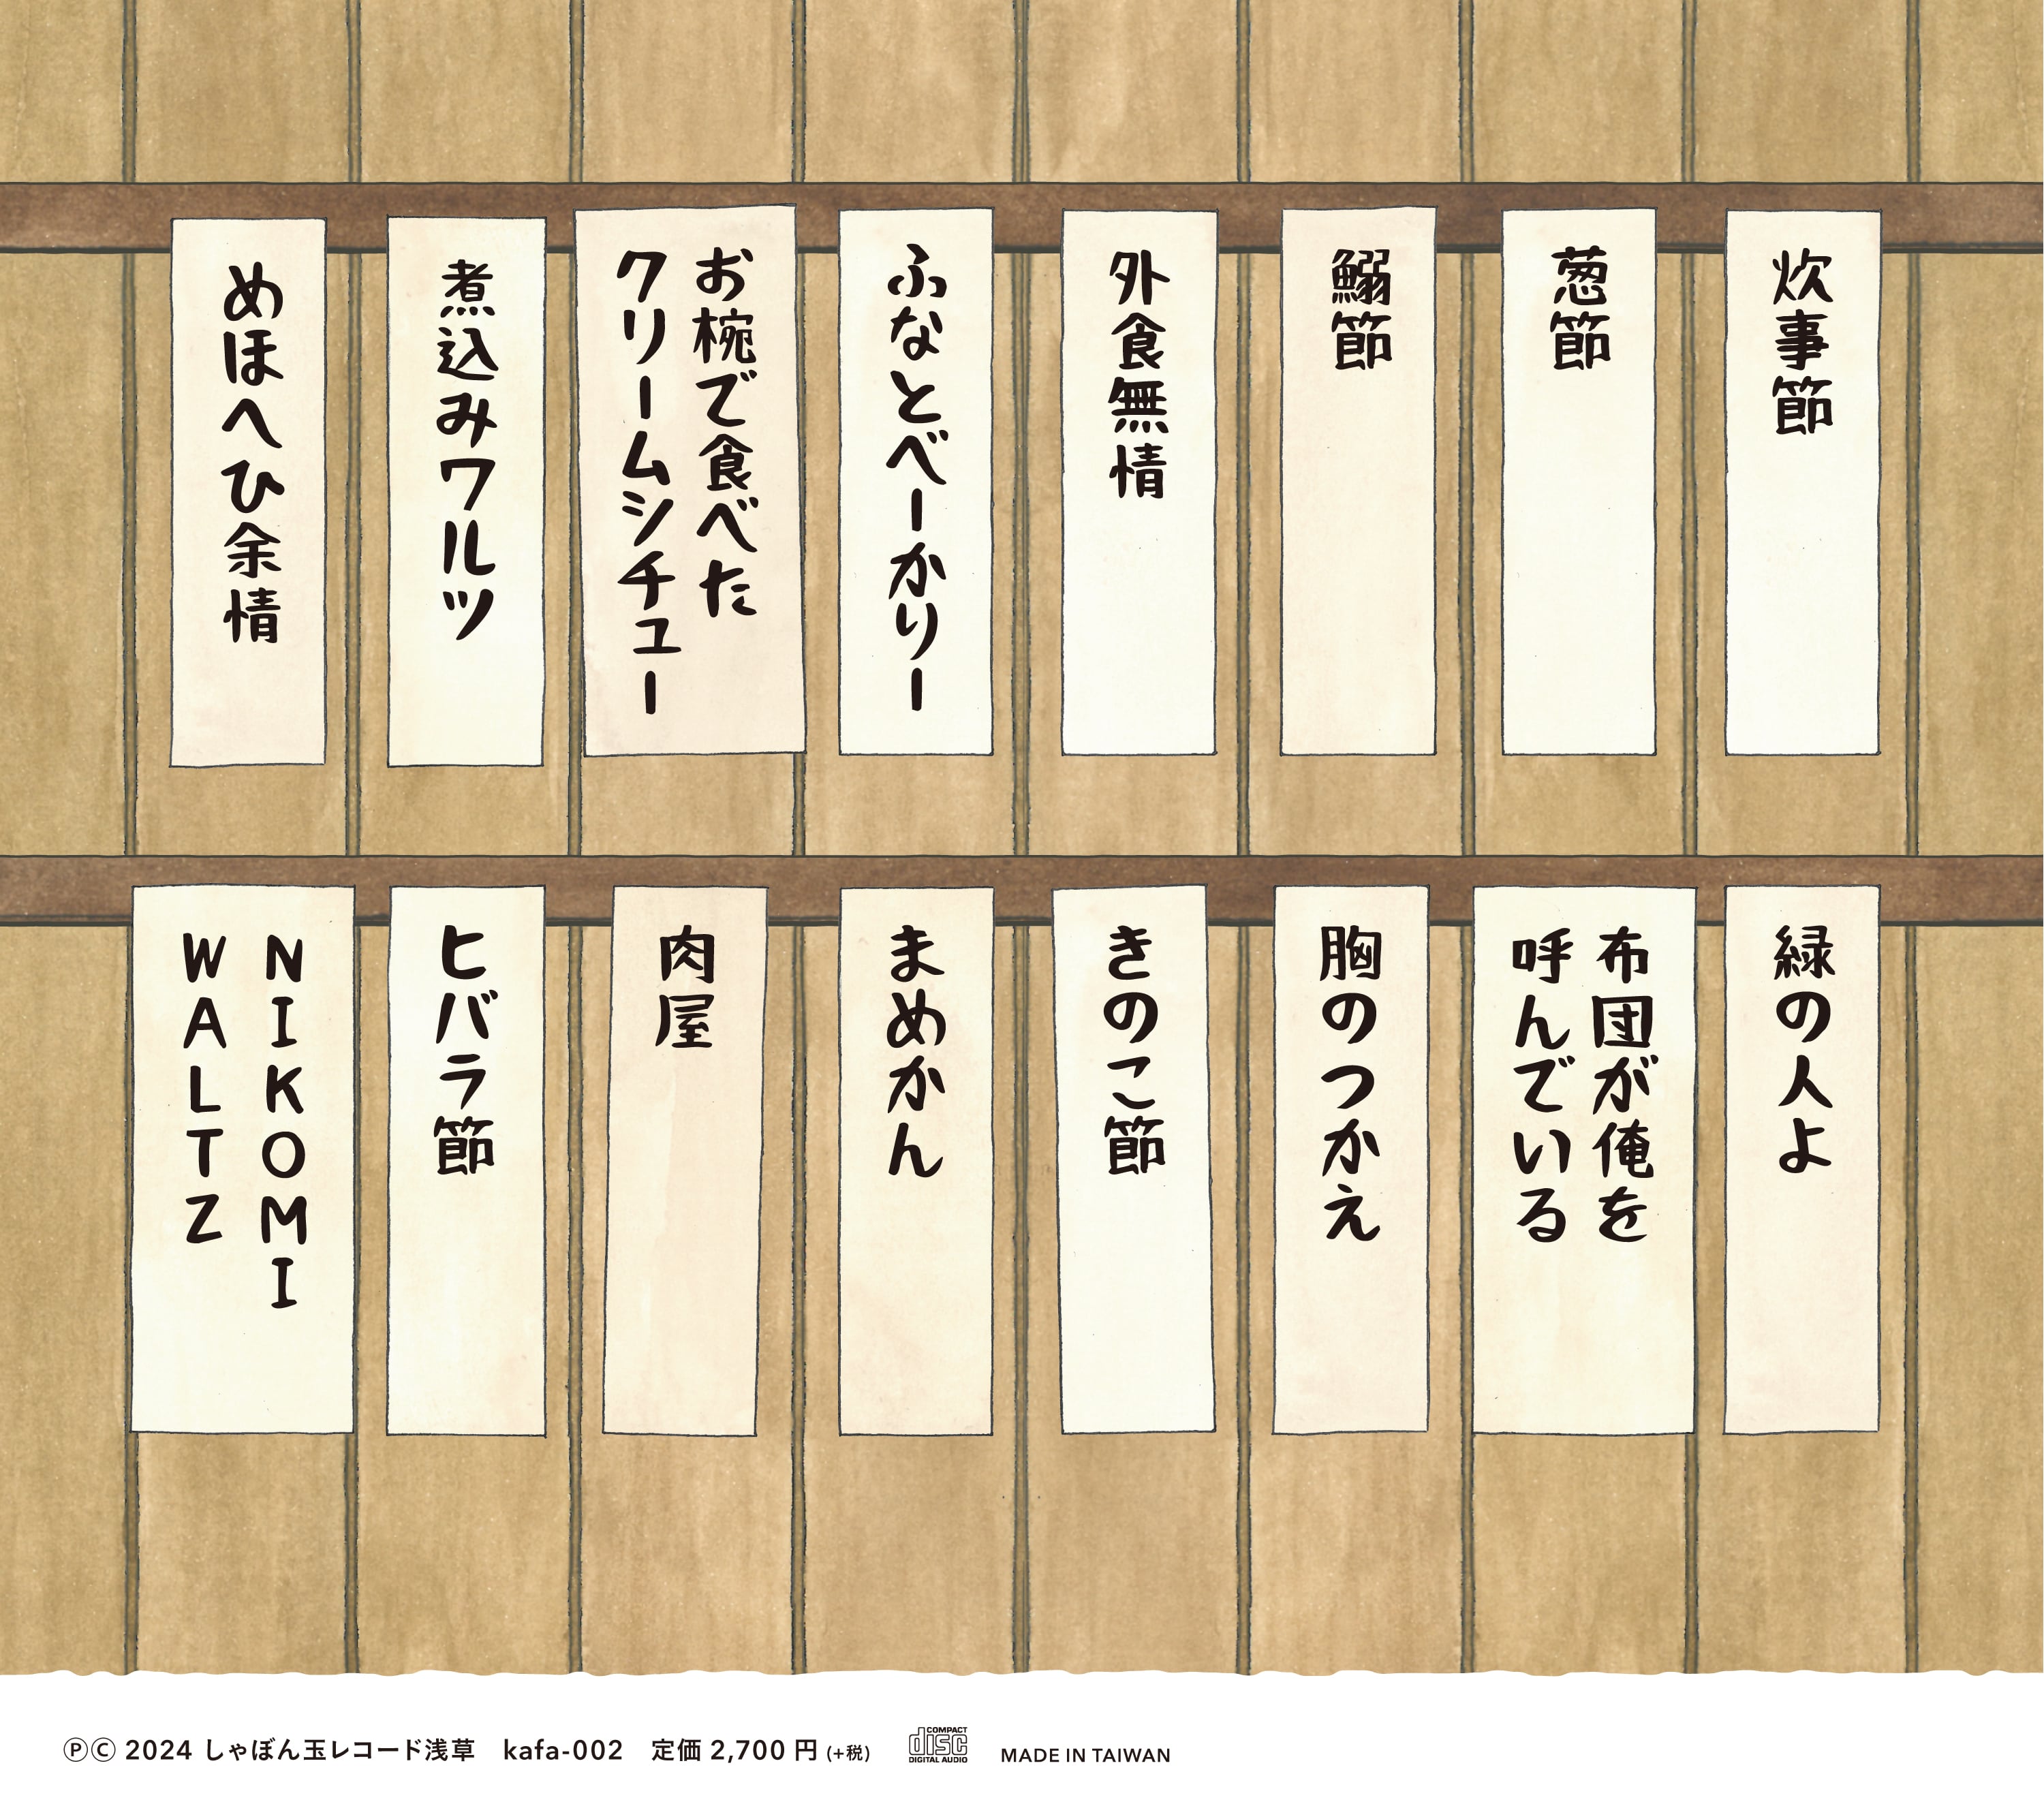 炊事節
葱節
鰯節
外食無情
ふなとべーかりー
お椀で食べた
クリームシチュー
煮込みワルツ
めほへひ余情
緑の人よ
布団が俺を
呼んでいる
胸のつかえ
きのこ節
まめかん
肉屋
ヒバラ節
NIKOMI
WALTZ
ⓅⒸ 2024 しゃぼん玉レコード浅草 kafa-002 定価 2,700 円 (+税)
COMPACT
disc
DIGITAL AUDIO
MADE IN TAIWAN